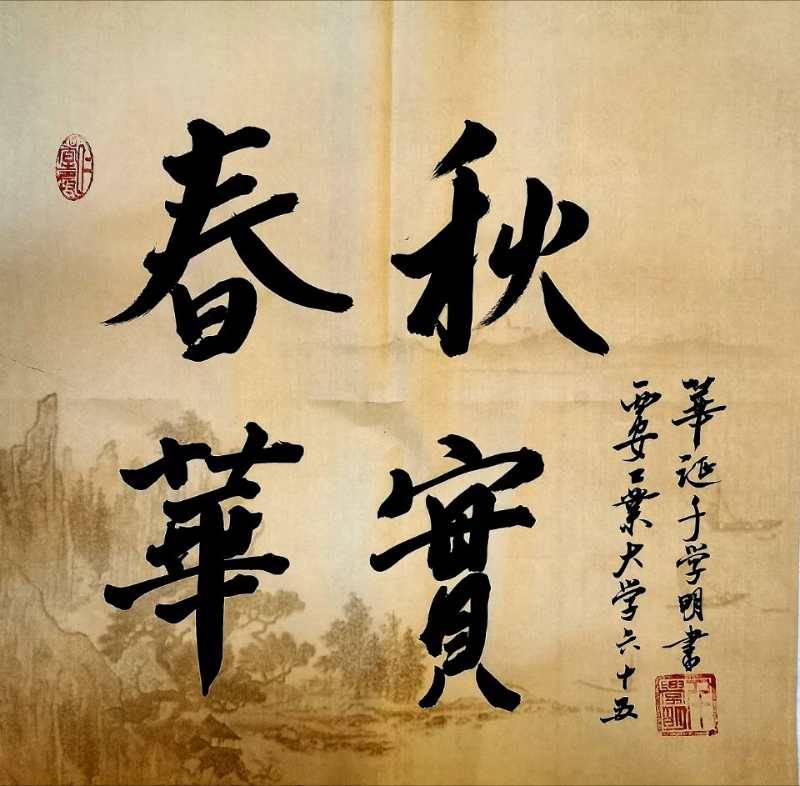 春華
秋實
西安工業大学六十五
華诞于学明書